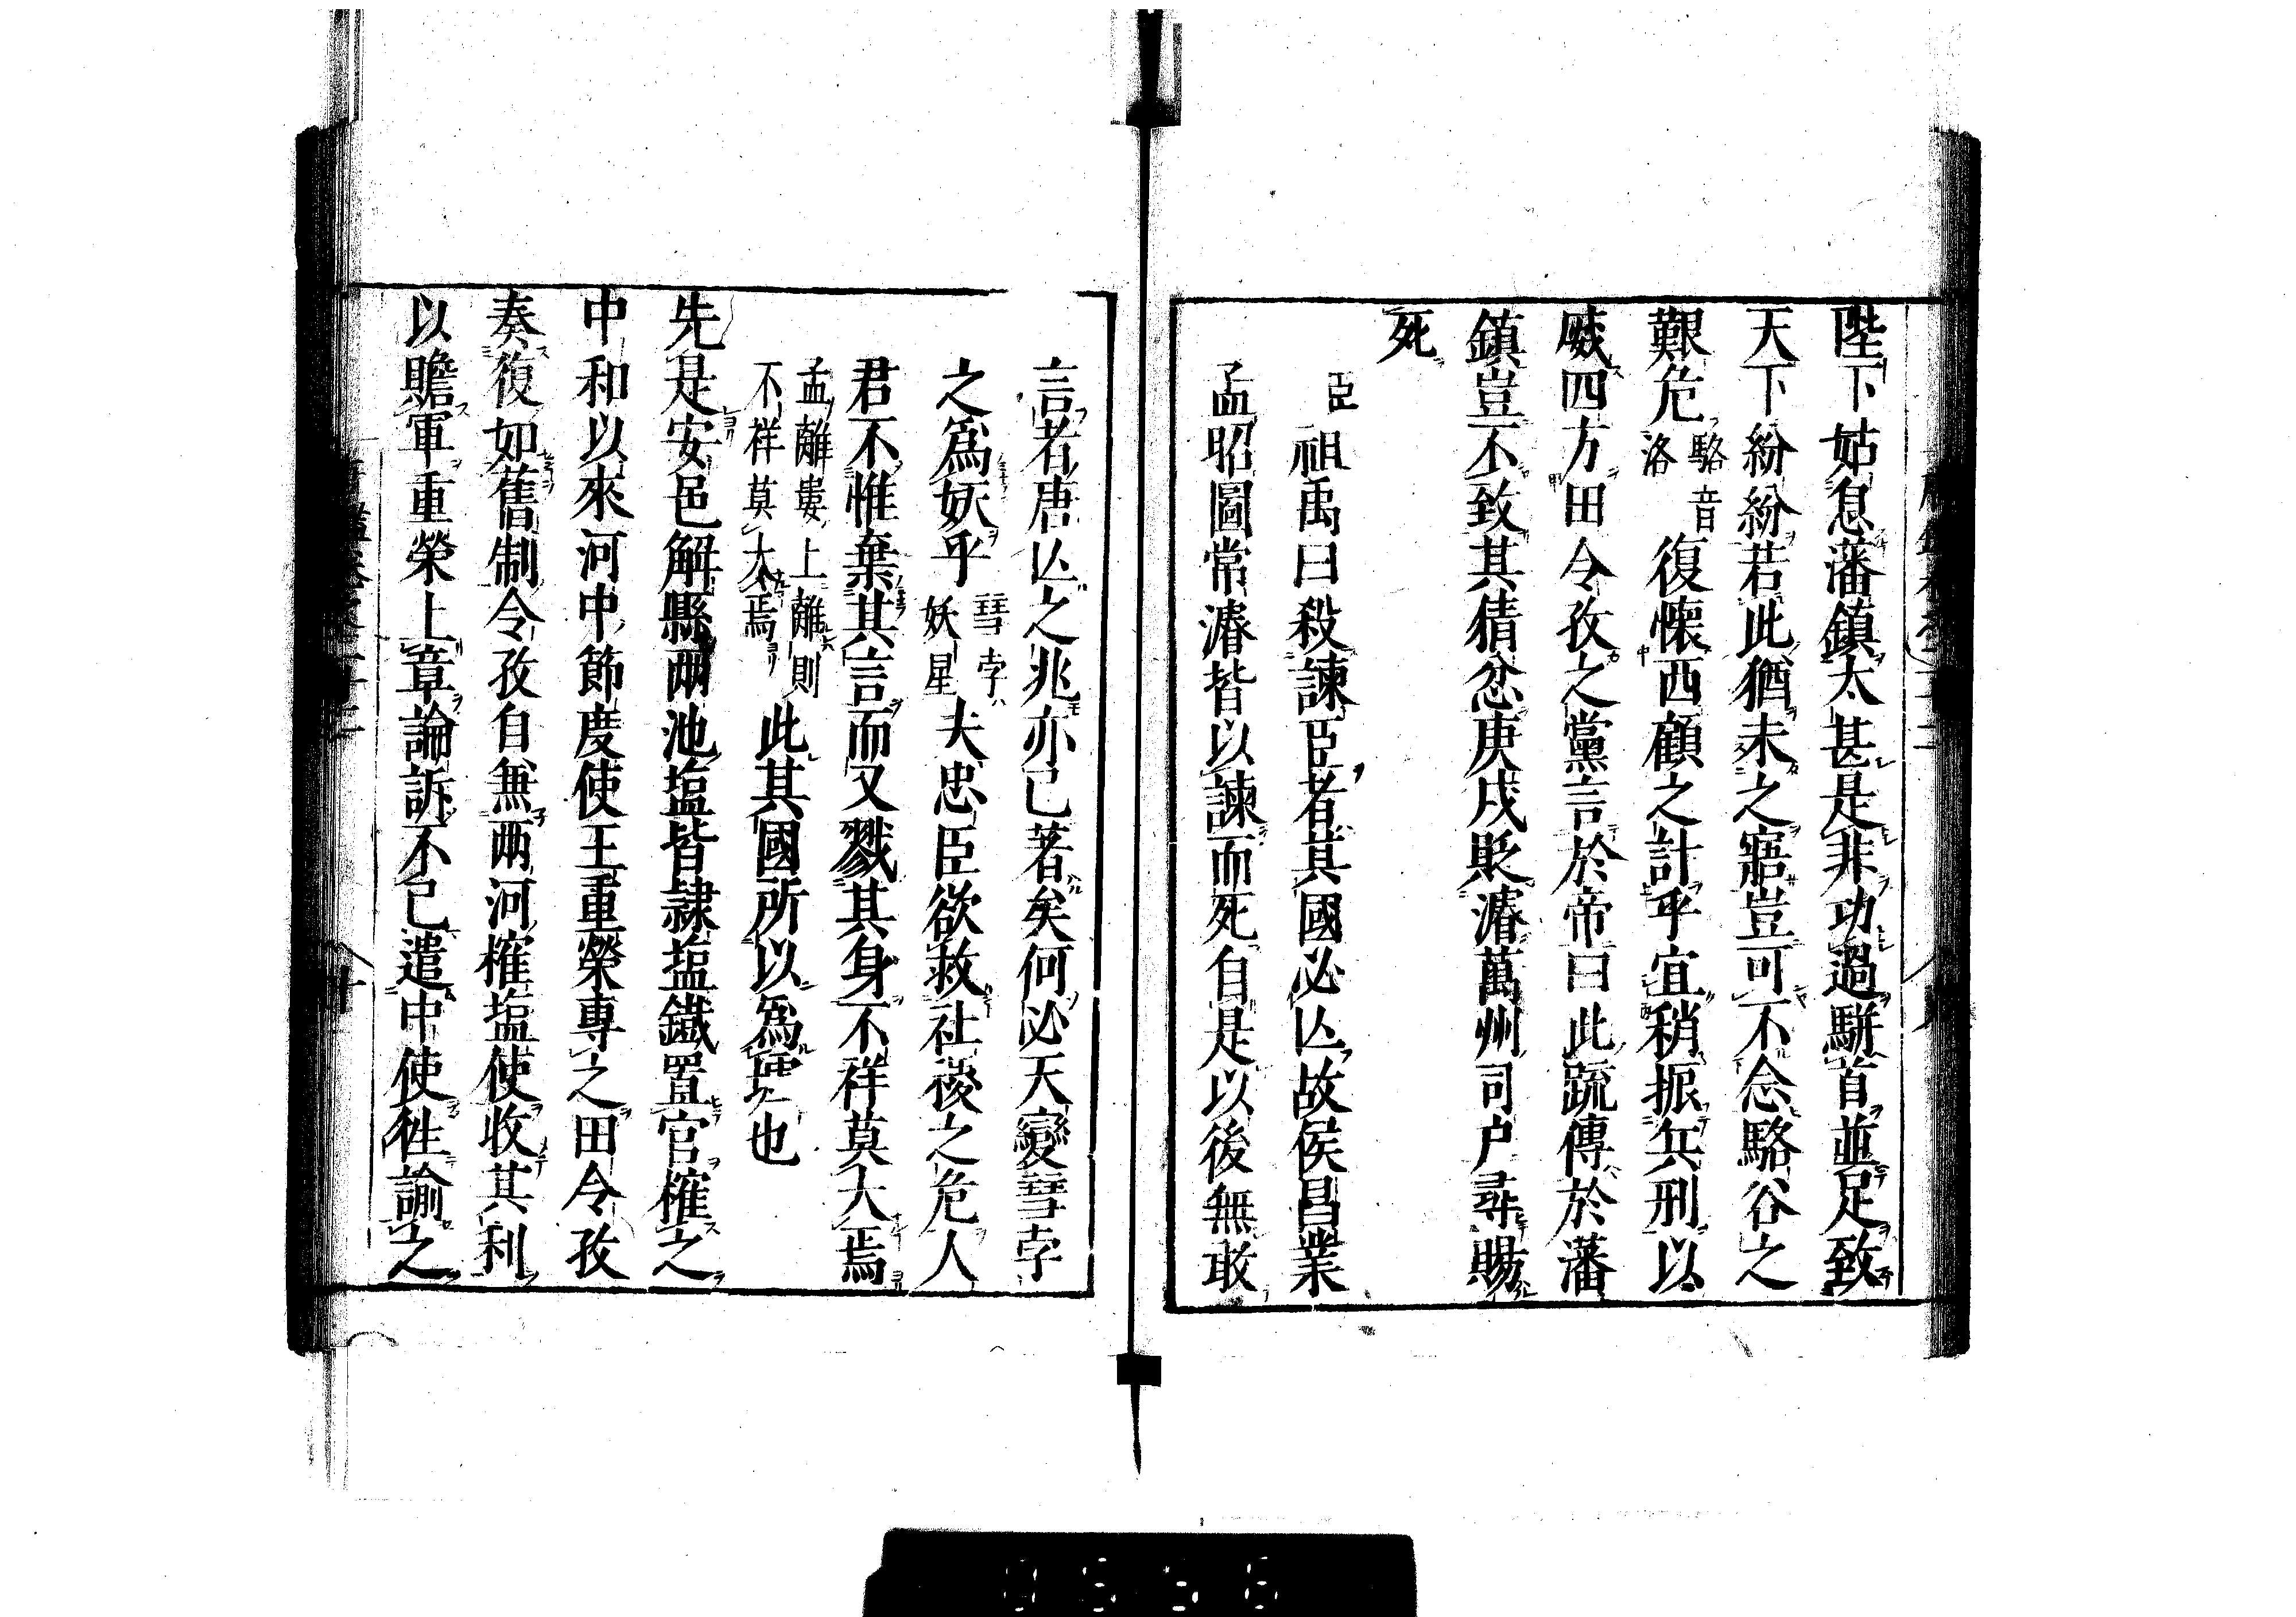 陛下姑息藩鎮太甚是非功過駢首並足致
天下紛紛若此猶未之寤豈可不念駱谷之
艱危駱音洛復懷西顧之計乎宜稍振兵刑以
威四方田令孜之黨言於帝曰此疏傳於藩
鎮豈不致其猜忿庚戌貶濬萬州司户尋賜
死
臣祖禹曰殺諫臣者其國必亾故侯昌業
孟昭圖常濬皆以諫而死自是以後無敢
言者唐亾之兆亦已著矣何必天變彗孛
之爲妖乎彗孛妖星夫忠臣欲救社稷之危人
君不惟棄其言而又戮其身不祥莫大焉
孟離婁上離則不祥莫大焉此其國所以爲墟也
先是安邑解縣兩池塩皆隷塩鐵置官榷之
中和以來河中節度使王重榮專之田令孜
奏復如舊制令孜自兼兩河榷塩使收其利
以贍軍重榮上章論訴不已遣中使徃諭之